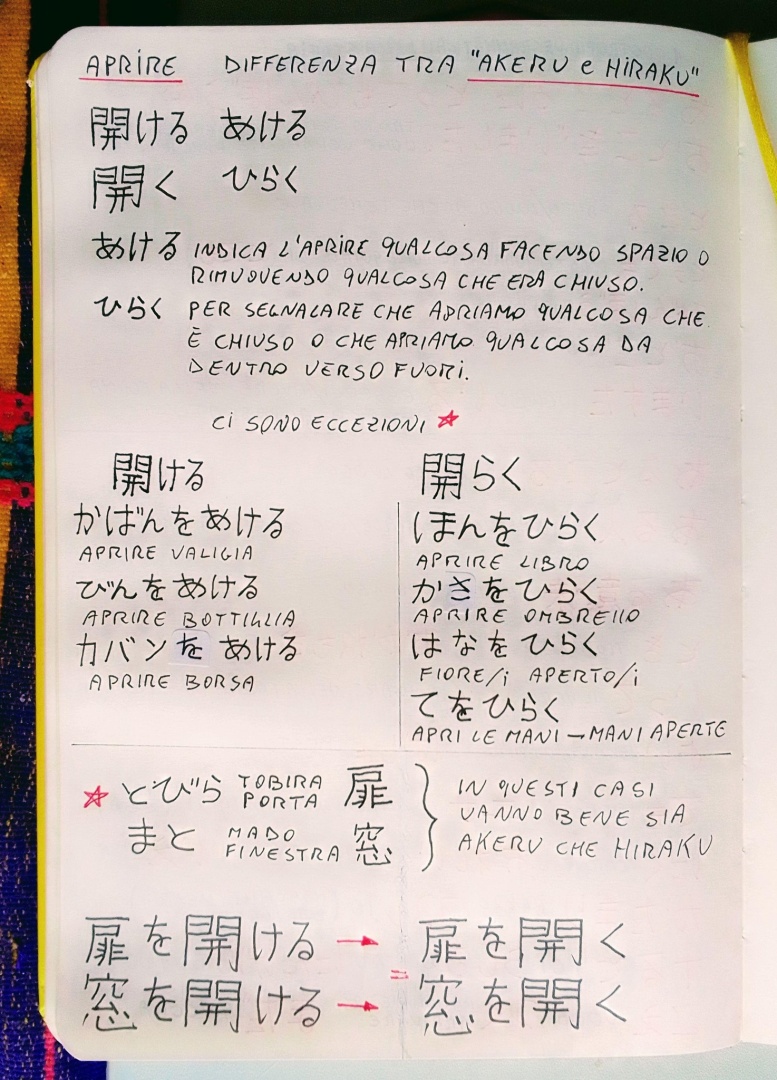 APRIRE DIFFERENZA TRA "AKERU e HIRAKU"
開ける あける
開く ひらく
あける INDICA L'APRIRE QUALCOSA FACENDO SPAZIO O
RIMUOVENDO QUALCOSA CHE ERA CHIUSO.
ひらく PER SEGNALARE CHE APRIAMO QUALCOSA CHE
È CHIUSO O CHE APRIAMO QUALCOSA DA
DENTRO VERSO FUORI.
CI SONO ECCEZIONI ☆
開ける
かばんをあける
APRIRE VALIGIA
びんをあける
APRIRE BOTTIGLIA
カバンをあける
APRIRE BORSA
開らく
ほんをひらく
APRIRE LIBRO
かさをひらく
APRIRE OMBRELLO
はなをひらく
FIORE/i APERTO/i
てをひらく
APRI LE MANI → MANI APERTE
☆ とびら TOBIRA PORTA 扉
まと MADO FINESTRA 窓
IN QUESTI CASI
VANNO BENE SIA
AKERU CHE HIRAKU
扉を開ける → 扉を開く
=
窓を開ける → 窓を開く